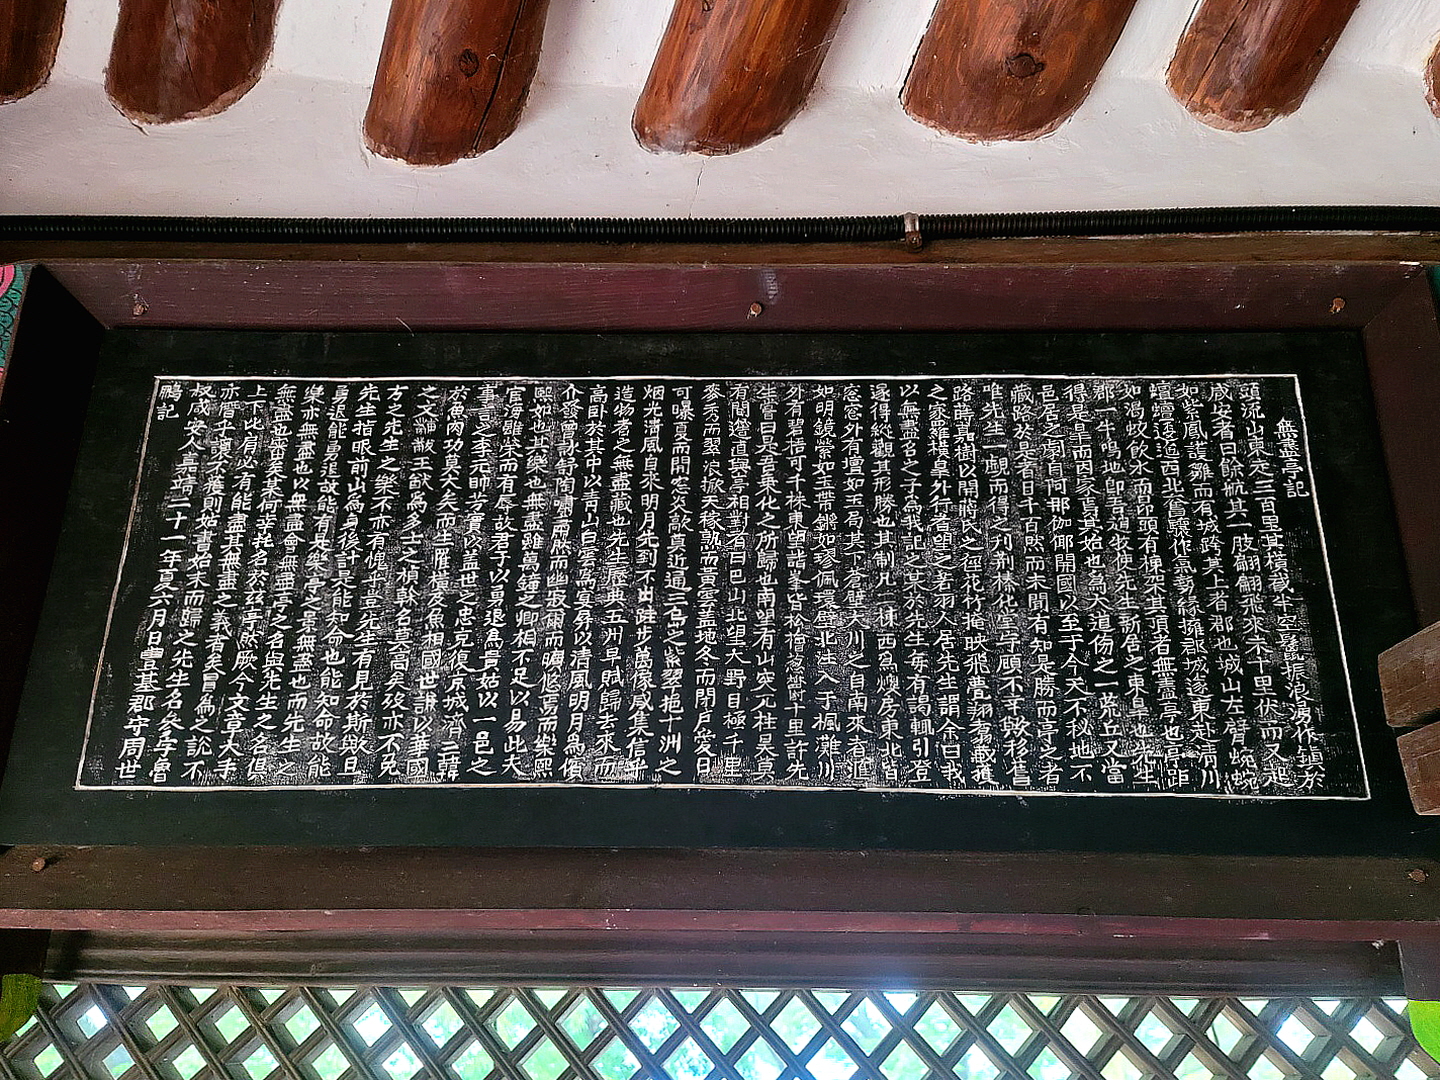 無盡亭記
頭流山東走三百里其橫截半空鬐振浪湧作鎭於
咸安者曰餘航其一肢翩翩飛來未十里伏而又起
如紫鳳護雛而有城跨其上者郡也城山左臂蜿蜿
蟺蟺逶迤西北奮驤作氣勢緣擁郡城遂東赴淸川
如渴蛟飮水而昂頭有棟架其項者無盡亭也亭距
郡一牛鳴地卽吾道牧使先生新居之東皐也先生
得是皐而因家焉其始也爲犬道傷之一荒丘又當
邑居之
藏路於是者日千百然而未聞有知是勝而亭之者
唯先生一覩而得之刋榛化宇于顧不平毁移舊
路蒔嘉樹以開蔣氏之徑花竹掩映飛甍翔
之家雖橫皐外行者望之若羽人居先生謂余曰我
以無盡名之子爲我記之某於先生每有謁輒引登
遂得縱觀其形勝也其制凡一棟西爲燠房東北皆
窓窓外有壇如玉局其下蒼壁大川之自南來者滙
如明鏡縈如玉帶鏘如璆佩環壁北注入于楓灘川
外有碧梧可千株東望諸峯皆松檜蔘蔚十里許先
生嘗曰是吾乘化之所歸也南望有山突兀柱昊莫
有間遮直與亭相對者曰巴山北望大野目極千里
麥秀而翠浪掀天稼熟而黃雲蓋地冬而閉戶愛日
可曝夏而開窓炎歊莫近通三島之紫翠挹十洲之
烟光淸風自來明月先到不出跬步萬像咸集信乎
造物者之無盡藏也先生歷典五州早賦歸去來而
高臥於其中以靑山白雲爲宴昇以淸風明月爲儐
介發曾詠舒陶嘯肅然而幽寂爾而曠悠焉而樂熙
熙如也其樂也無盡雖萬鍾之卿相不足以易此夫
官海雖榮而有辱故君子以勇退爲貴姑以一邑之
事言之李元帥芳實以蓋世之忠克復京城濟二韓
於魚肉功莫大矣而生厓橫友魚相國世謙以華國
之文黼黻王猷爲多士之楨幹名莫高矣歿亦不免
方之先生之樂不亦有愧乎豈先生有見於斯歟且
先生指眼前山爲身後計是能知命也能知命故能
勇退能勇退故能有是樂亭之景無盡也而先生之
樂亦無盡也以無盡會無盡亭之名與先生之名俱
無盡也盛矣某荷幸托名於玆亭然厥今文章大手
上下比肩必有能盡其無盡之義者矣曷爲之說不
亦僭乎讓不獲則姑書如未而歸之先生名參字魯
叔咸安人嘉靖二十一年夏六月日豊基郡守周世
鵬記